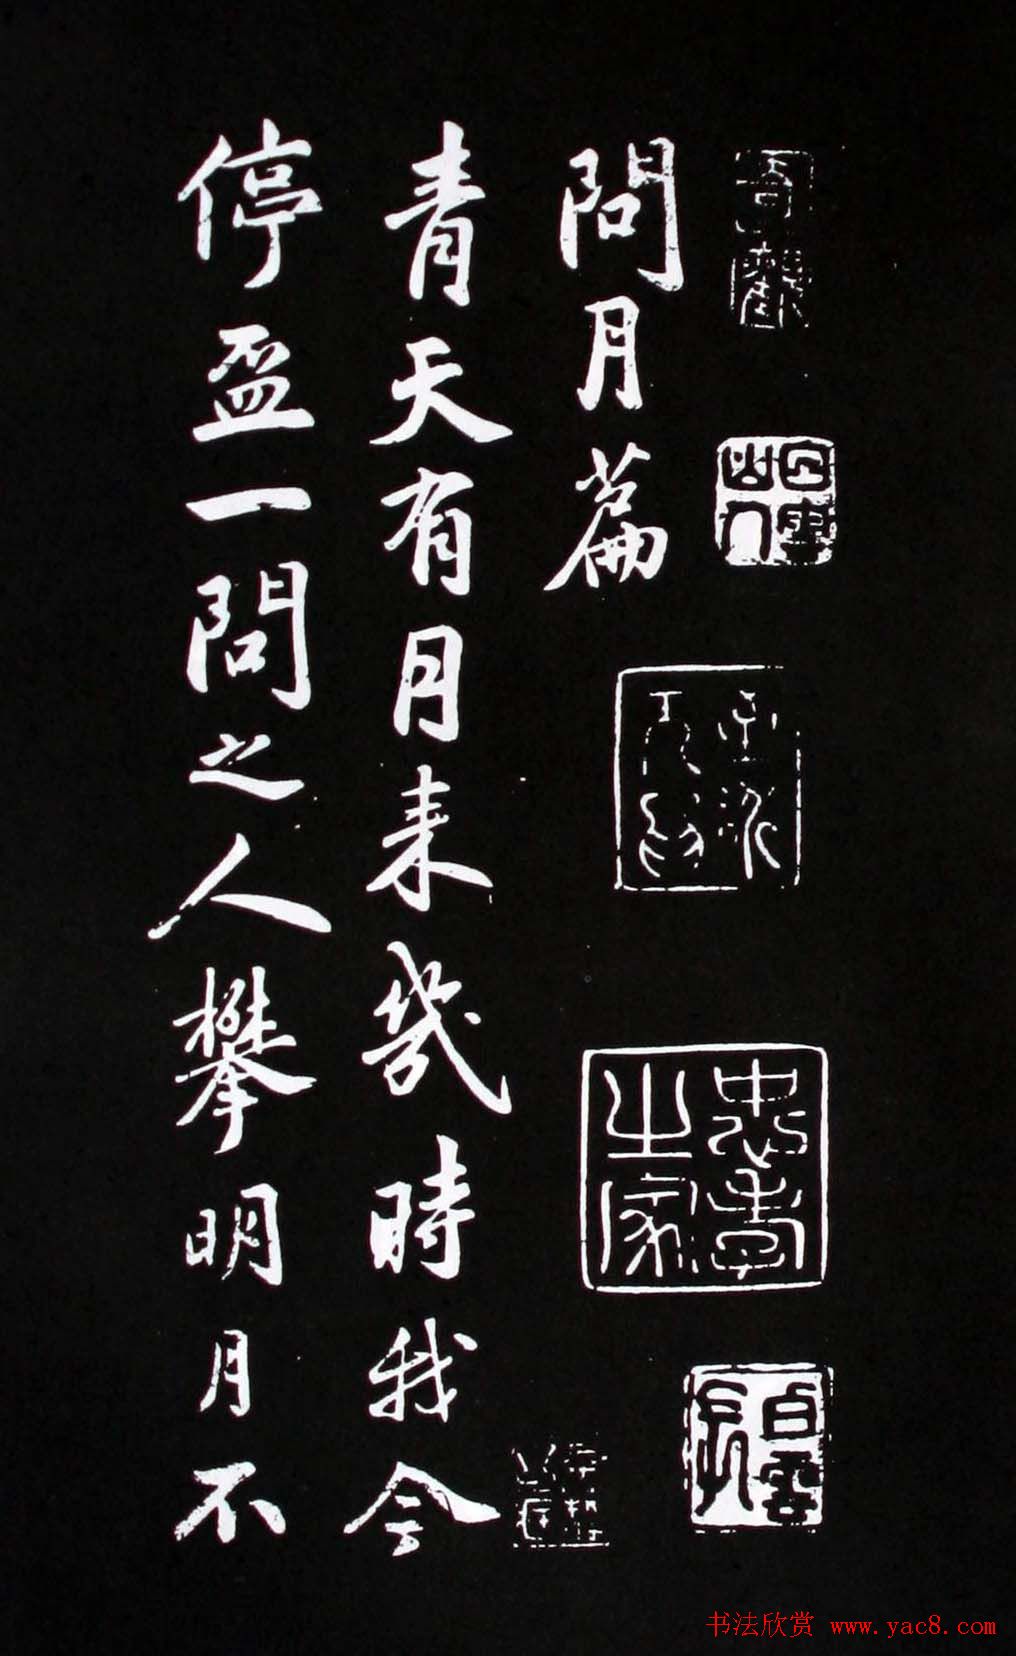 忠孝之家
問月篇
青天有月来幾時我今
停盃一問之人攀明月不
书法欣赏 www.yac8.com